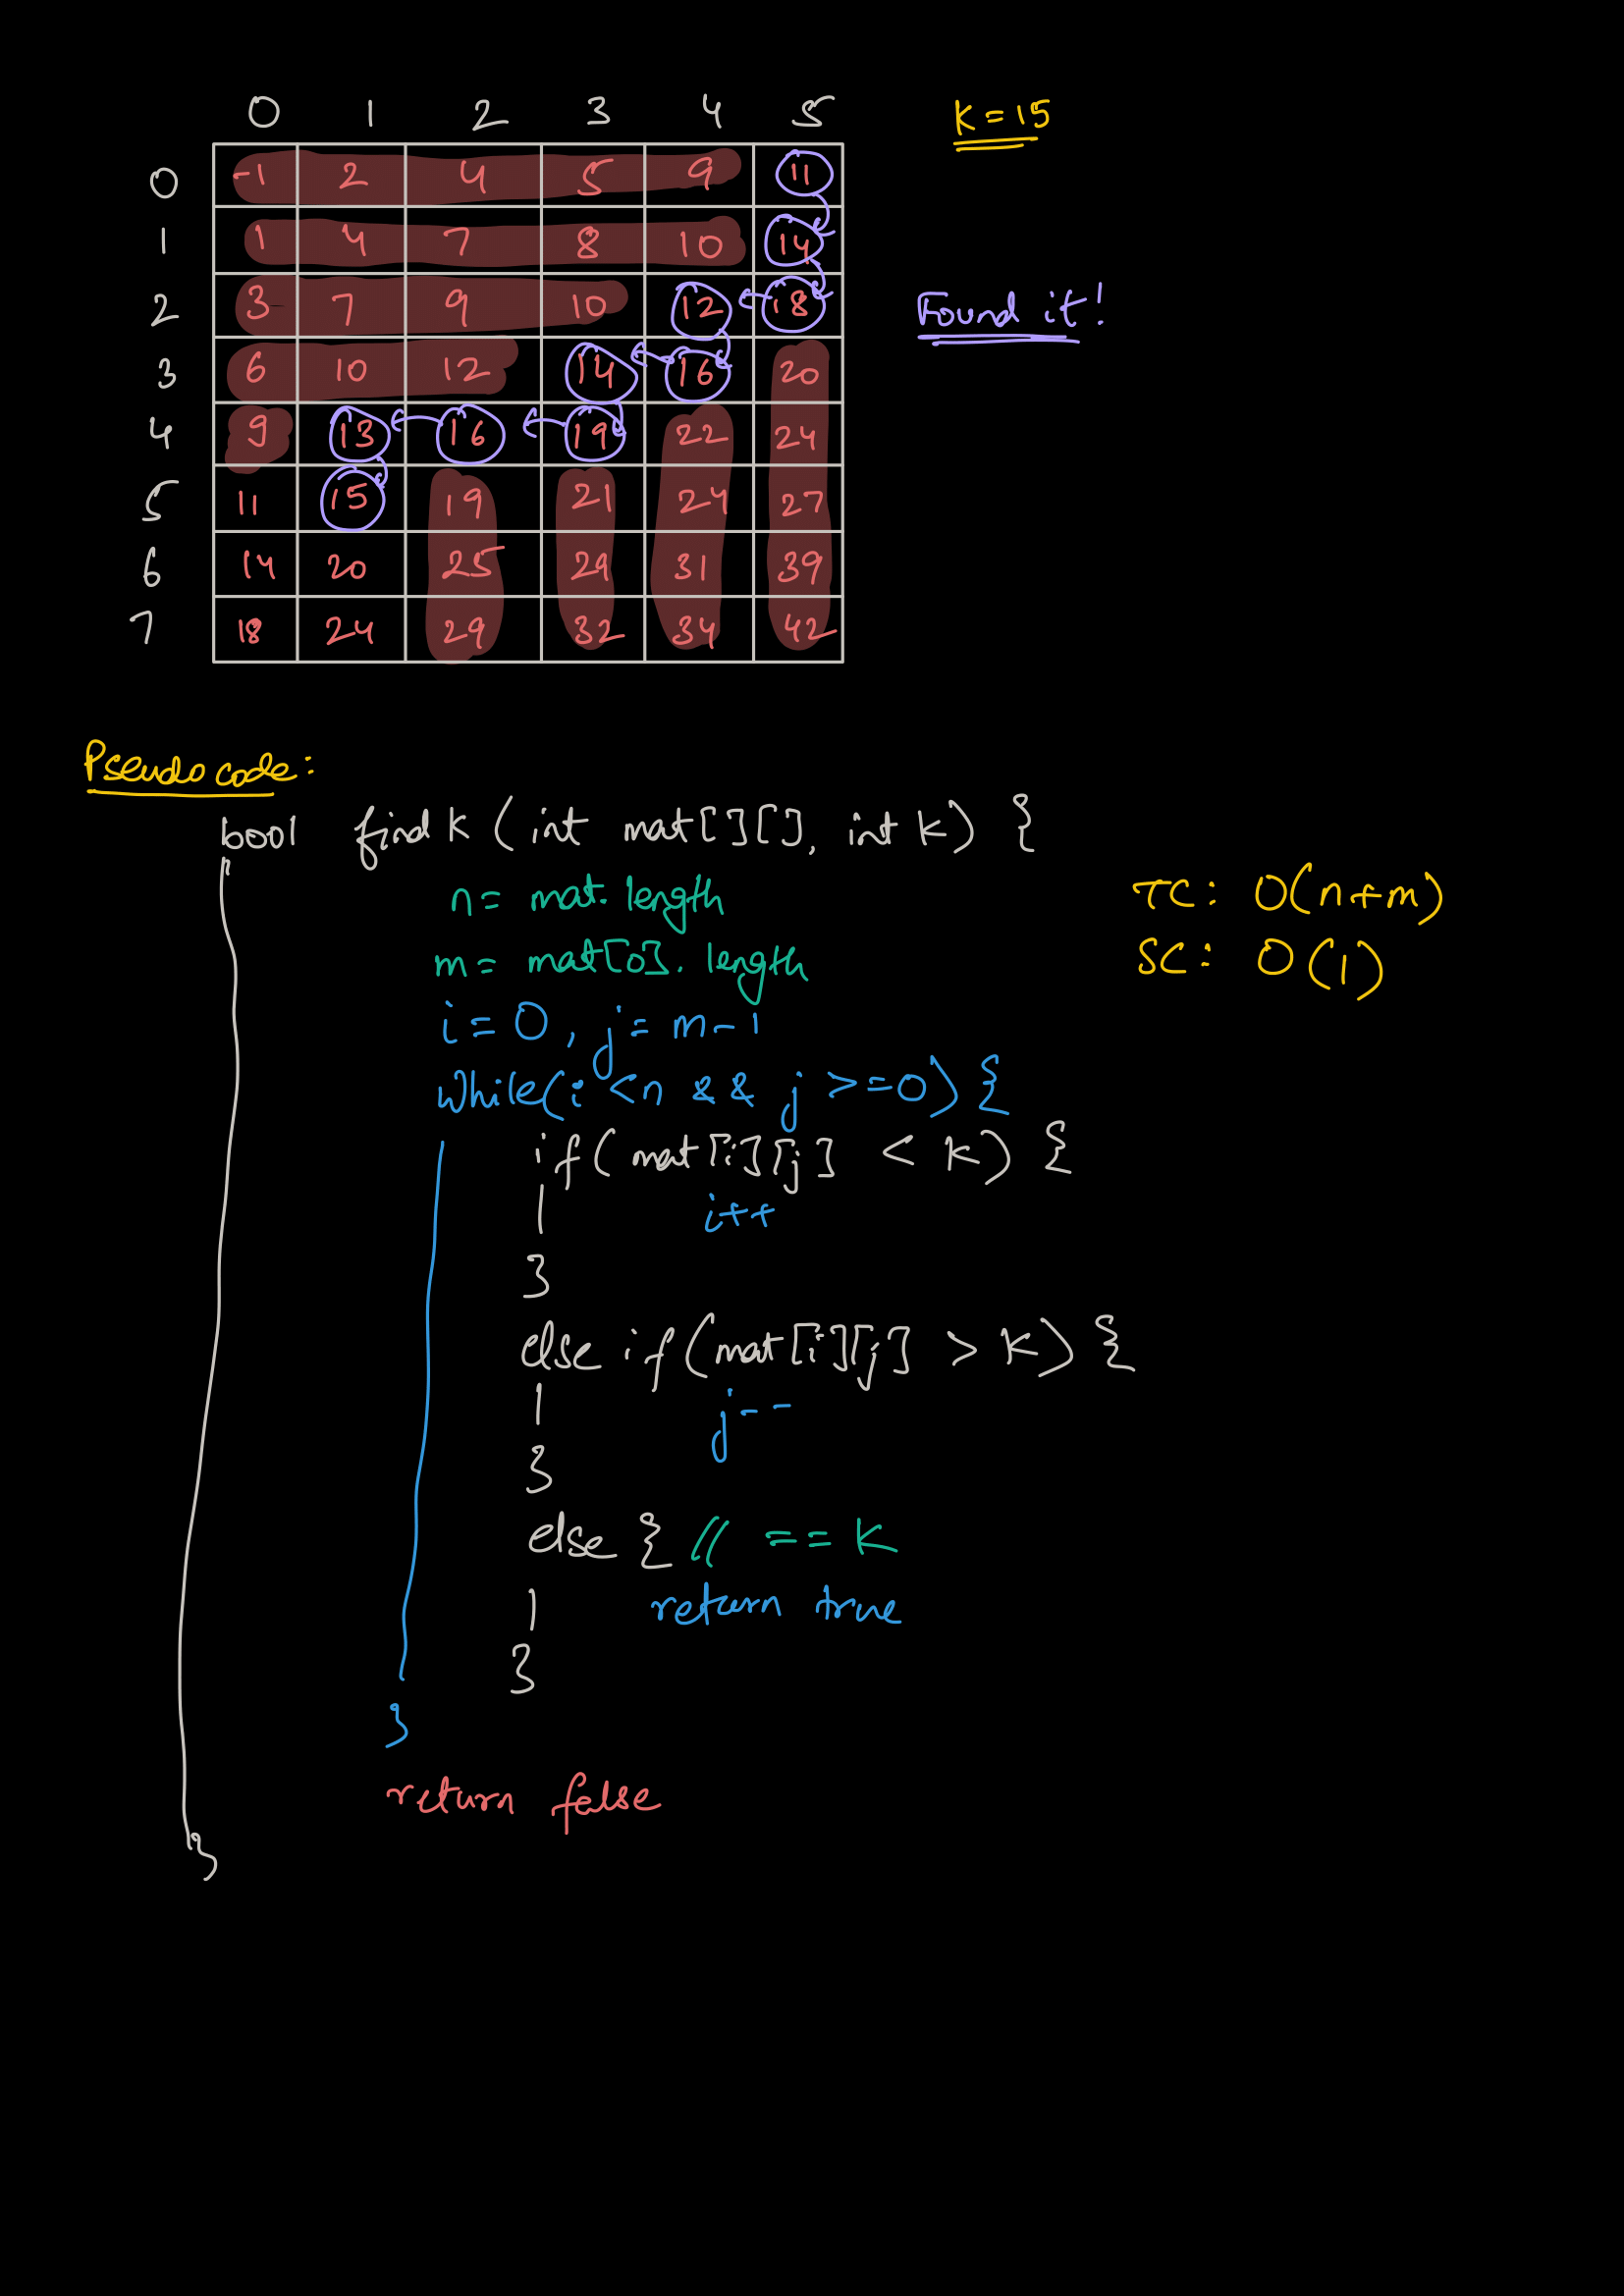 0 1 2 3 4 5
K = 15
0 -1 2 4 5 9 11
1 1 4 7 8 10 14
2 3 7 9 10 12 18
Found it!
3 6 10 12 14 16 20
4 9 13 16 19 22 24
5 11 15 19 21 24 27
6 14 20 25 29 31 39
7 18 24 29 32 34 42
Pseudo code:
bool find K (int mat[][], int K) {
n = mat.length
TC: O(n+m)
m = mat[0].length
SC: O(1)
i = 0, j = m-1
while(i <n && j >=0) {
if(mat[i][j] < K) {
i++
}
else if(mat[i][j] > K) {
j--
}
else { // == K
return true
}
}
return false
}